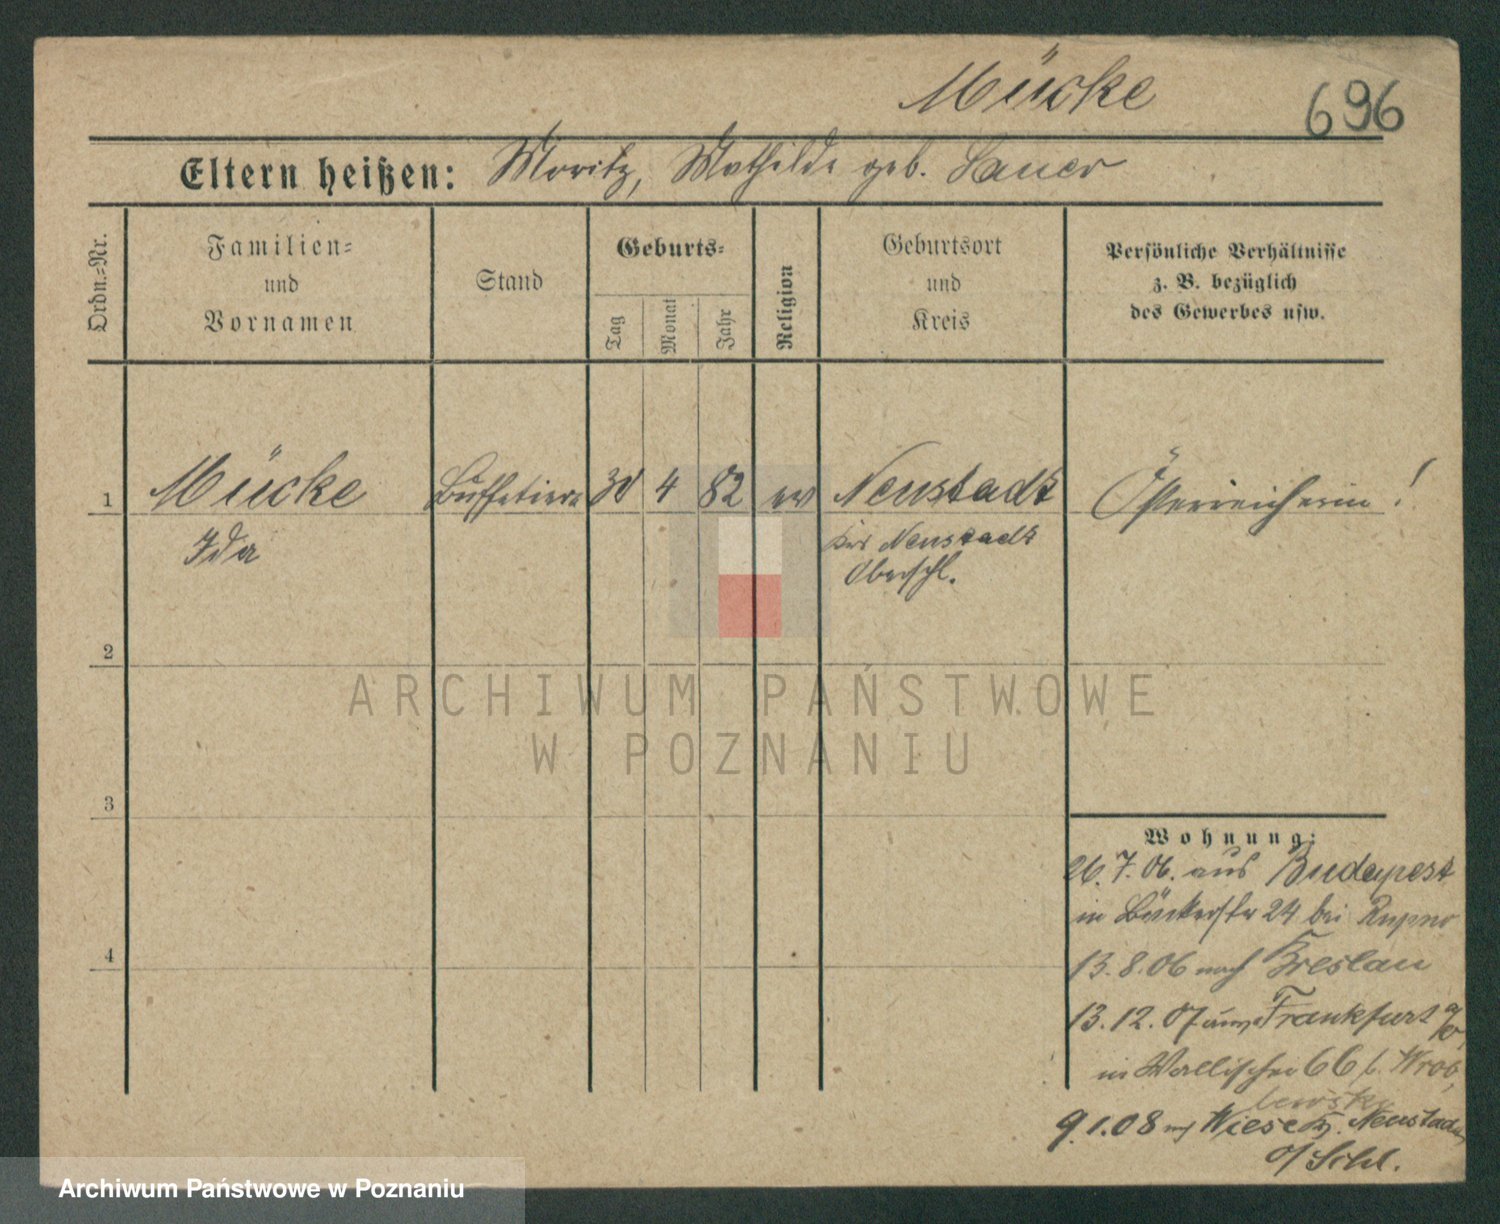 Mücke 696
Eltern heißen: Moritz, Mathilde geb. Sauer
Ordn.=Nr.
Familien=
und
Vornamen
Stand
Geburts=
Tag
Monat
Jahr
Religion
Geburtsort
und
Kreis
Persönliche Verhältnisse
z. B. bezüglich
des Gewerbes usw.
1 Mücke Buffetiere 30 4 82 ev Neustadt Österreicherin!
Ida Neustadt
Oberschl.
2
ARCHIWUM PAŃSTWOWE
W POZNANIU
3
4
Wohnung:
26.7.06. aus Budapest
in 24 bei
13.8.06 nach Breslau
13.12.07 Frankfurt a/O
in Wallischei 66 b. Wrob
lewski
9.1.08 Wiese Neustadt
o/Schl.
Archiwum Państwowe w Poznaniu